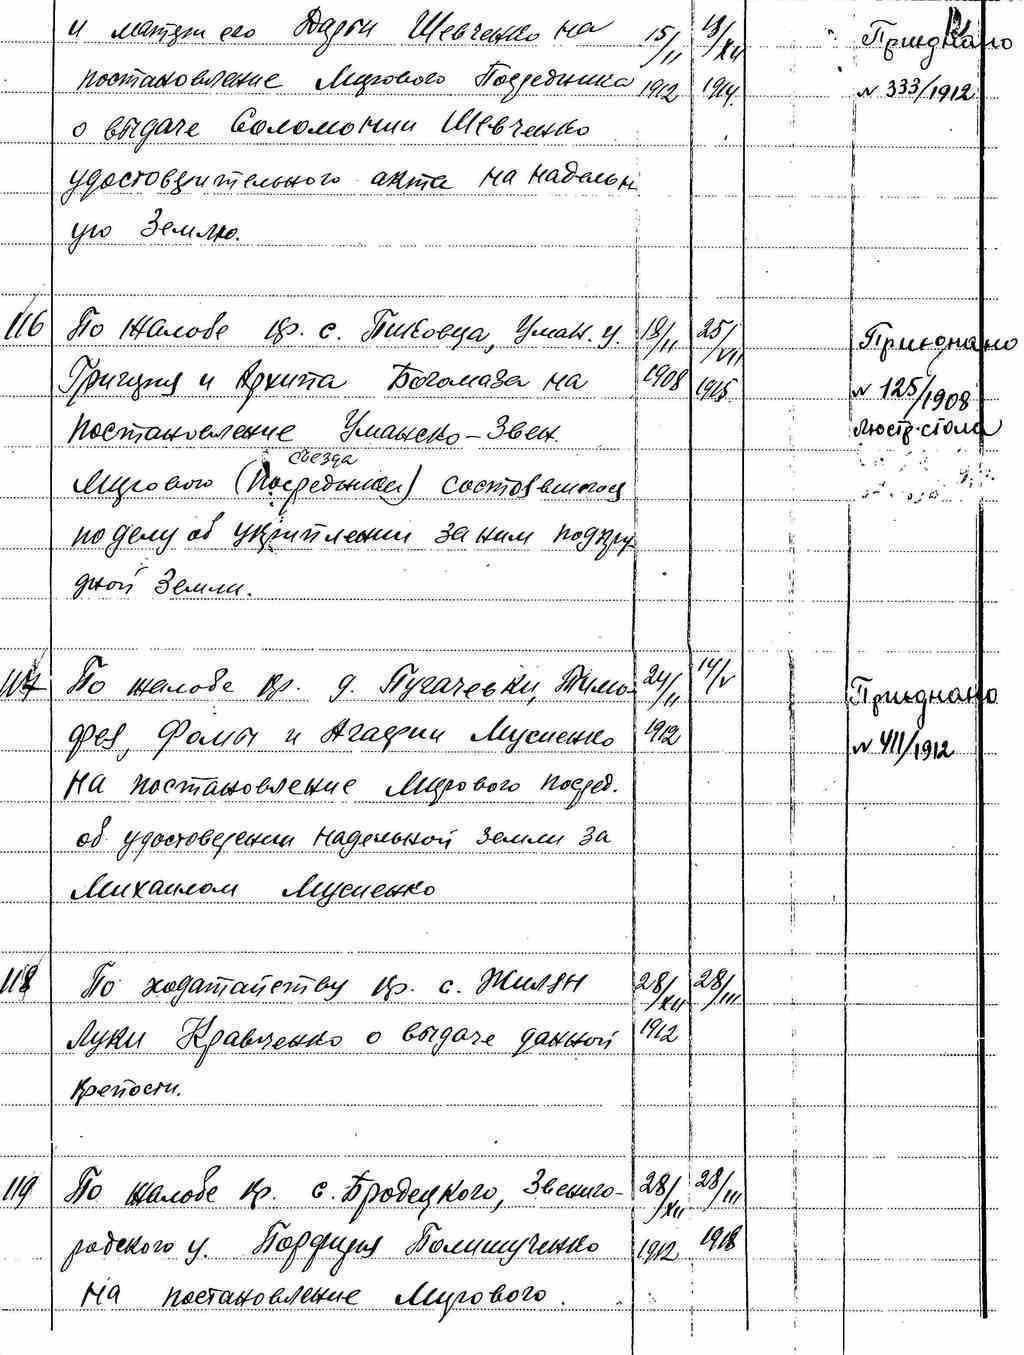 и матери его Дарьи Шевченко на 15/II 13/XII Приєднано
постановление Мирового Посредника 1912 1914. № 333/1912
о выдаче Соломонии Шевченко
удостоверительного акта на надельн
ую Землю.
116 По жалобе кр. с. Пиковца, Уман. у. 19/II 25/VII Приєднано
Григория и Архипа Богомаза на 1908 1915 № 125/1908
постановление Уманско-Звен. люстр. стола
съезда
Мирового (Посредников) состоявшегося
по делу об укреплении за ним подкру
дной Земли.
117 По жалобе кр. д. Пугачевки, Тимо- 24/II 14/V Приєднано
фея, Фомы и Агафии Мусиенко 1912 № 411/1912
на постановление Мирового посред.
об удостоверении надельной земли за
Михаилом Мусиенко
118 По ходатайству кр. с. Жилян 28/XII 28/III
Луки Кравченко о выдаче данной 1912
крепости.
119 По жалобе кр. с. Бродецкого, Звениго- 28/XII 28/III
родского у. Порфирия Полищученко 1912 1918
на постановление Мирового.